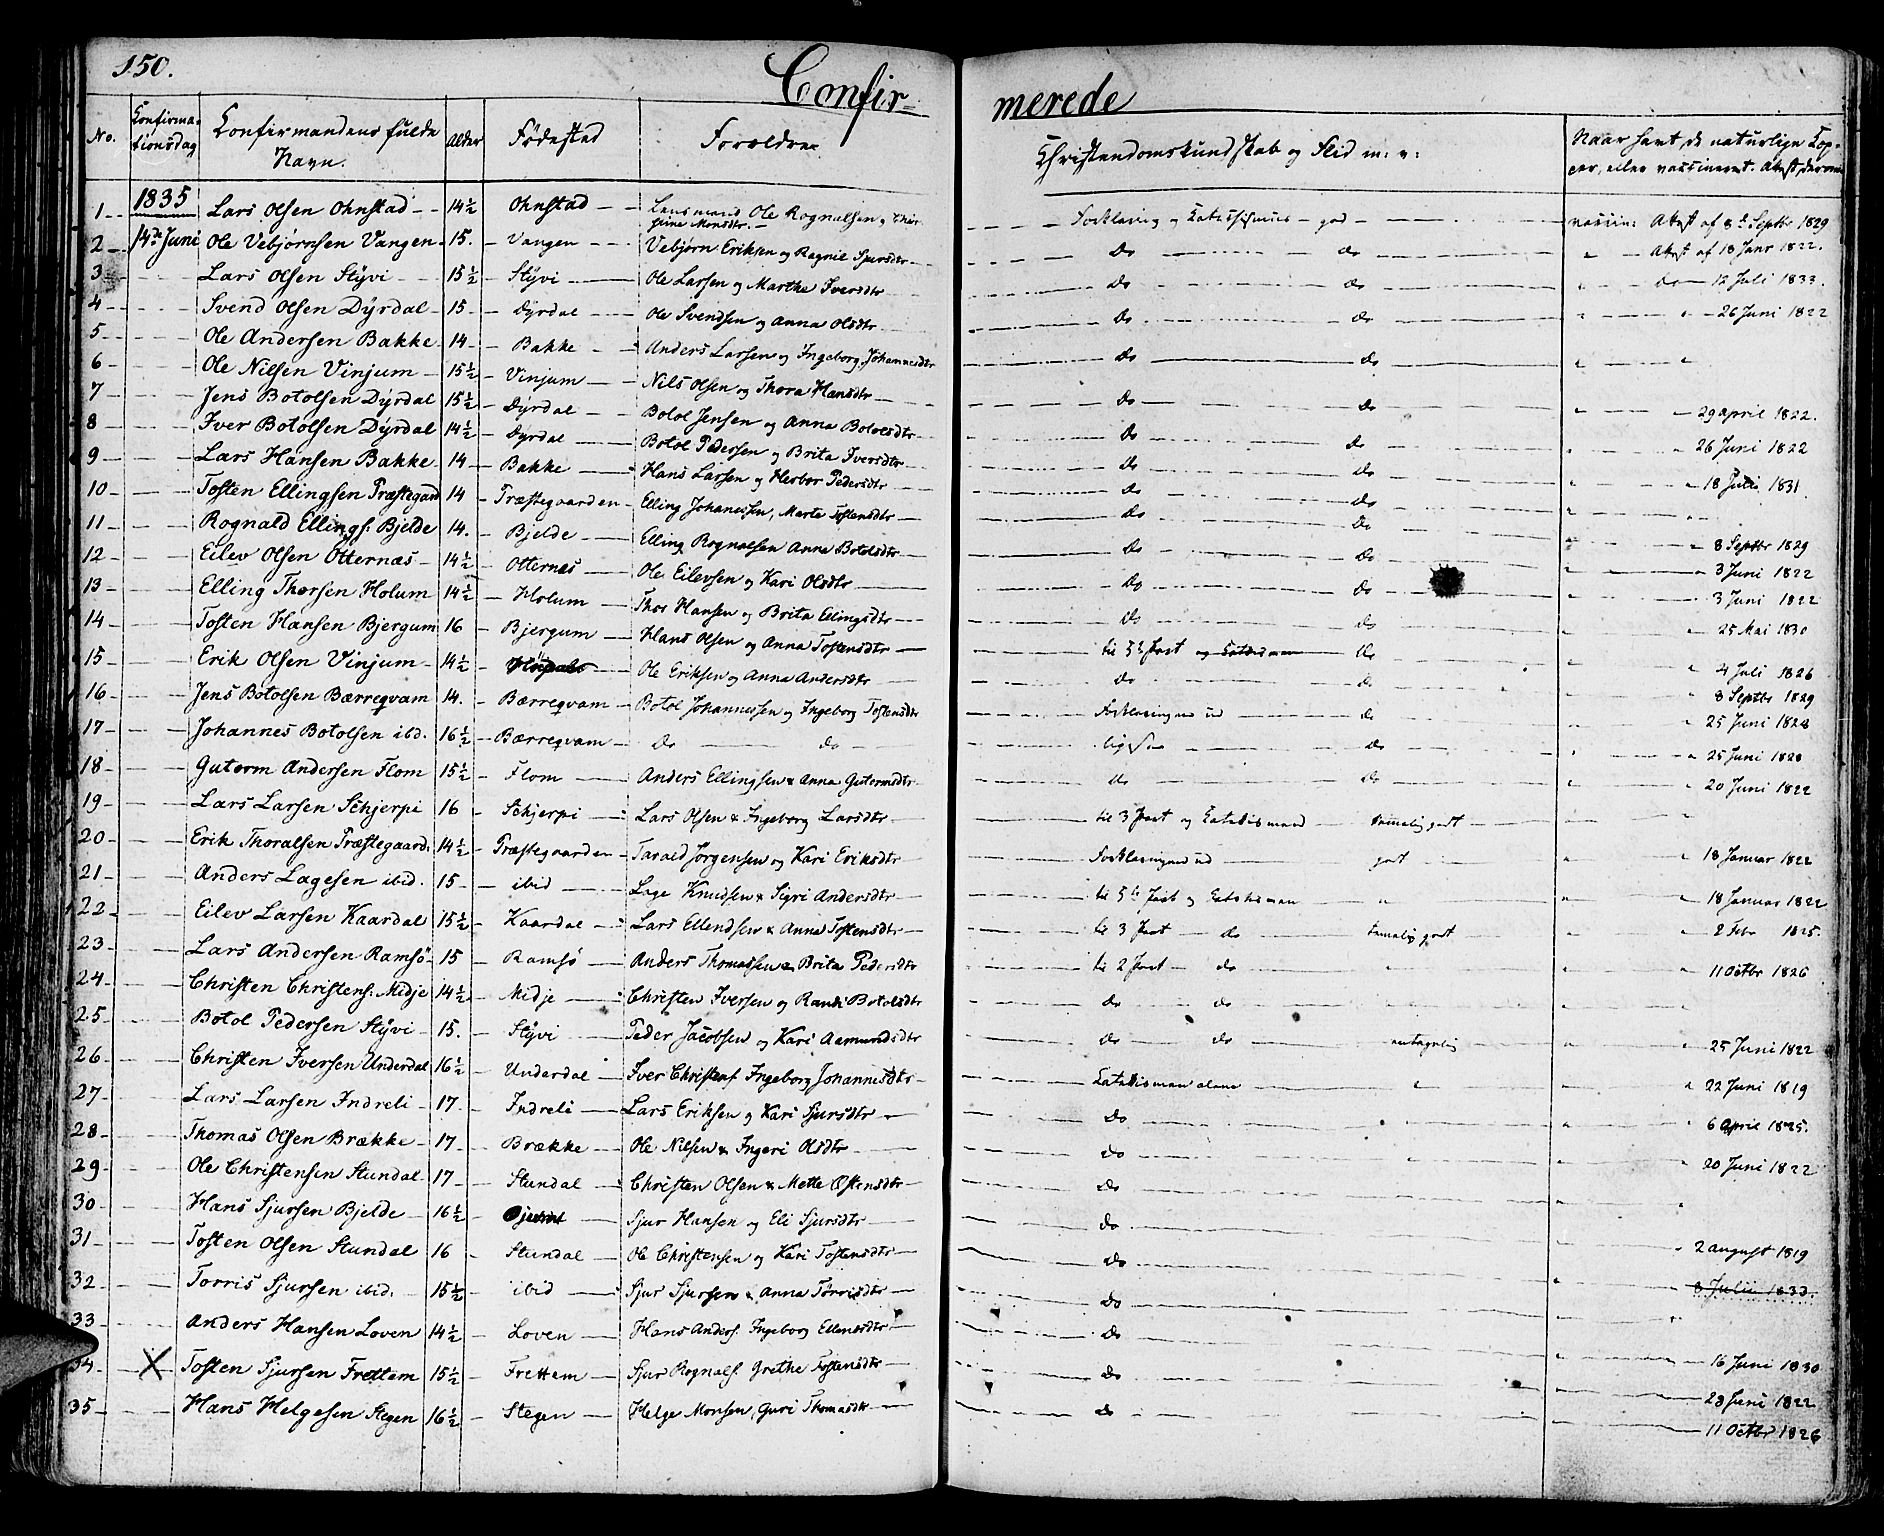 150.
Confir-
merede
No.
Confirma-
tionsdag
Confirmandens fulde
Navn.
Alder
Fødestad
Forældre
Christendomskundskab og Flid m: v:
Naar havt de naturlige Kop-
per, eller vaccineret. Attest derom
1835
1 Lars Olsen Ohnstad 14½ Ohnstad Lensmand Ole Rognalsen og
Monsdtr. Forklaring og Catechismus god vaccin: Attest af 8de Septbr 1829
2 14de Juni Ole Vebjørnsen Vangen 15. Vangen Vebjørn Eriksen og Ragnil Sjursdtr Do do " Attest af 18 Janr 1822.
3 Lars Olsen Styvi 15½ Styvi Ole Larsen og Marthe Iversdtr Do do " Do 12 Juli 1833.
4 Svend Olsen Dyrdal 15 Dyrdal Ole Svendsen og Anna Olsdtr Do do " " 26 Juni 1822
5 Ole Andersen Bakke 14 Bakke Anders Larsen og Ingeborg Johannesdtr Do do " "
6 Ole Nilsen Vinjum 15½ Vinjum Nils Olsen og Thora Hansdtr Do do " 29 april 1822.
7 Jens Botolsen Dyrdal 15½ Dyrdal Botol Jensen og Anna Botolsdtr Do do " 26 Juni 1822
8 Iver Botolsen Dyrdal 14½ Dyrdal Botol Pedersen og Brita Iversdtr Do do " 18 Julii 1831.
9 Lars Hansen Bakke 14 Bakke Hans Larsen og Herbor Pedersdtr Do do " "
10 Tosten Ellingsen Præstegaard 14 Præstegaarden Elling Johannessen, Marta Tostensdtr Do do " 8 Septbr 1829
11 Rognald Ellings: Bjelde 14. Bjelde Elling Rognalsen Anna Botolsdtr Do do " 3 Juni 1822
12 Eilev Olsen Otternæs 14½ Otternæs Ole Eilevsen og Kari Olsdtr Do do " 3 Juni 1822
13 Elling Thorsen Holum 14½ Holum Thor Hansen og Brita Ellingsdtr Do do " 25 Mai 1830
14 Tosten Hansen Bjergum 16 Bjergum Hans Olsen og Anna Tostensdtr til 5te Part og do " 4 Juli 1826
15 Erik Olsen Vinjum 14½ Ole Eriksen og Anna Andersdtr do do 8 Septbr 1829
16 Jens Botolsen Bærreqvam 14. Bærreqvam Botol Johannessen og Ingeborg Tostensdtr Forklaringen ud do " 25 Juni 1828
17 Johannes Botolsen ibd. 16½ Bærreqvam Do do ligesaa do " 25 Juni 1828
18 Guterm Andersen Flom 15½ Flom Anders Ellingsen & Anna Gutermsdtr do do " 20 Juni 1822
19 Lars Larsen Schjerpi 16 Schjerpi Lars Olsen & Ingeborg Larsdtr til 3 Part og temelig godt " "
20 Erik Thoralsen Præstegaard: 14½ Præstegaarden Tarald Jørgensen og Kari Eriksdtr Forklaringen ud godt " 18 Januar 1822
21 Anders Lagesen ibid. 15 ibid Lage Knudsen & Sigri Andersdtr til 5te Part og " " 18 Januar 1822
22 Eilev Larsen Kaardal 15½ Kaardal Lars Ellendsen & Anna Tostensdtr til 3 Part do temelig godt " 2 Febr 1825.
23 Lars Andersen Ramsø 15 Ramsø Anders Thomassen & Brita Pedersdtr til 2 Part do " " 11 Octbr 1826
24 Christen Christens: Midje 14½ Midje Christen Iversen og Randi Botolsdtr do do " "
25 Botol Pedersen Styvi 15. Styvi Peder Jacobsen og Kari Aamundsdtr do do antagelig " 25 Juni 1822
26 Christen Iversen Underdal 16½ Underdal Iver Christens Ingeborg Johannesdtr alene " " 22 Juni 1819
27 Lars Larsen Indreli 17 Indreli Lars Eriksen og Kari Sjursdtr Do " 6 April 1825.
28 Thomas Olsen Brække 17 Brække Ole Nilsen & Ingeri Olsdtr do " " 20 Juni 1822
29 Ole Christensen Stundal 17 Stundal Christen Olsen & Mette Østensdtr Do " "
30 Hans Sjursen Bjelde 16½ Sjur Hansen og Eli Sjursdtr Do " 2 august 1819
31 Tosten Olsen Stundal 16 Stundal Ole Christensen og Kari Tostensdtr Do " 8 Julii 1833.
32 Torris Sjursen ibid. 15½ ibid Sjur Sjursen & Anna Tørrisdtr Do " "
33 Anders Hansen Loven 14½ Loven Hans Anders: Ingeborg Ellensdtr Do " 16 Juni 1830
34 X Tosten Sjursen Frettem 15½ Frettem Sjur Rognals: Grethe Tostensdtr Do 28 Juni 1822
35 Hans Helgesen Stegen 16½ Stegen Helge Monsen, Guri Thomasdtr Do 11 Octbr 1826